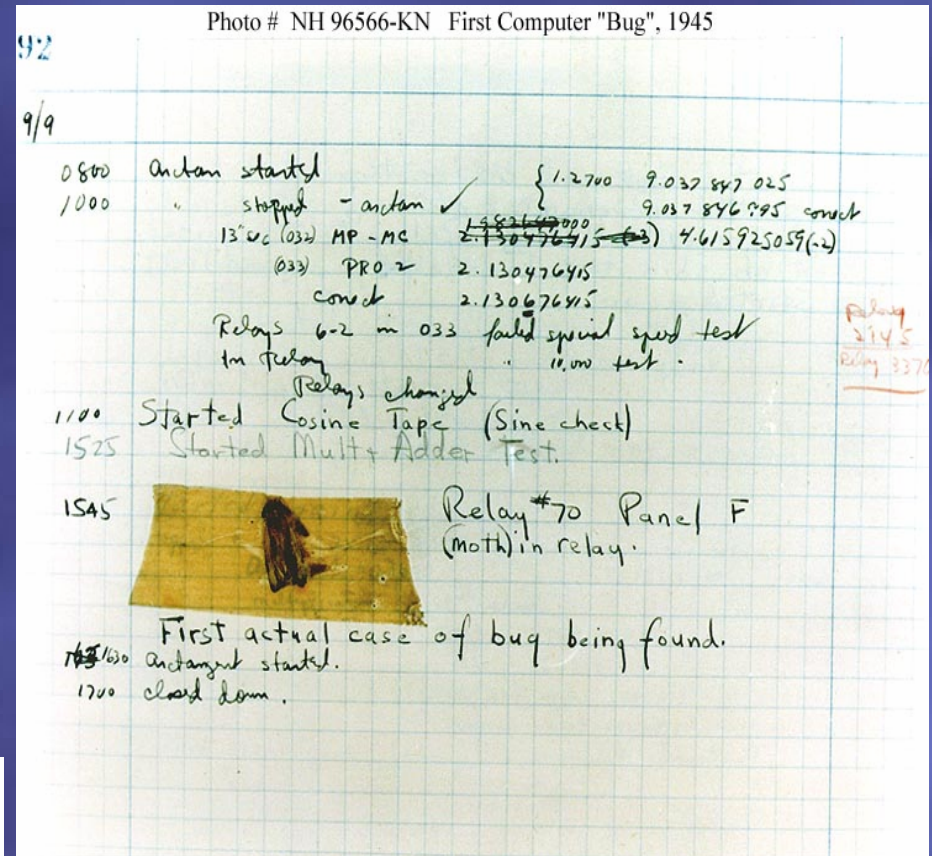 Photo # NH 96566-KN First Computer "Bug", 1945
92
9/9
0800 arctan started { 1.2700 9.037 847 025
1000 " stopped - arctan ✓ 9.037 846 995 correct
13"uc (032) MP - MC 4.615925059(-2)
(033) PRO 2 2.130476415
correct 2.130676415
Relays 6-2 in 033 failed special speed test
In Relay " 10,000 test.
Relay
2145
Relay 3370
Relays changed
1100 Started Cosine Tape (Sine check)
1525 Started Mult + Adder Test.
1545 Relay #70 Panel F
(moth) in relay.
First actual case of bug being found.
1630 arctangent started.
1700 closed down.